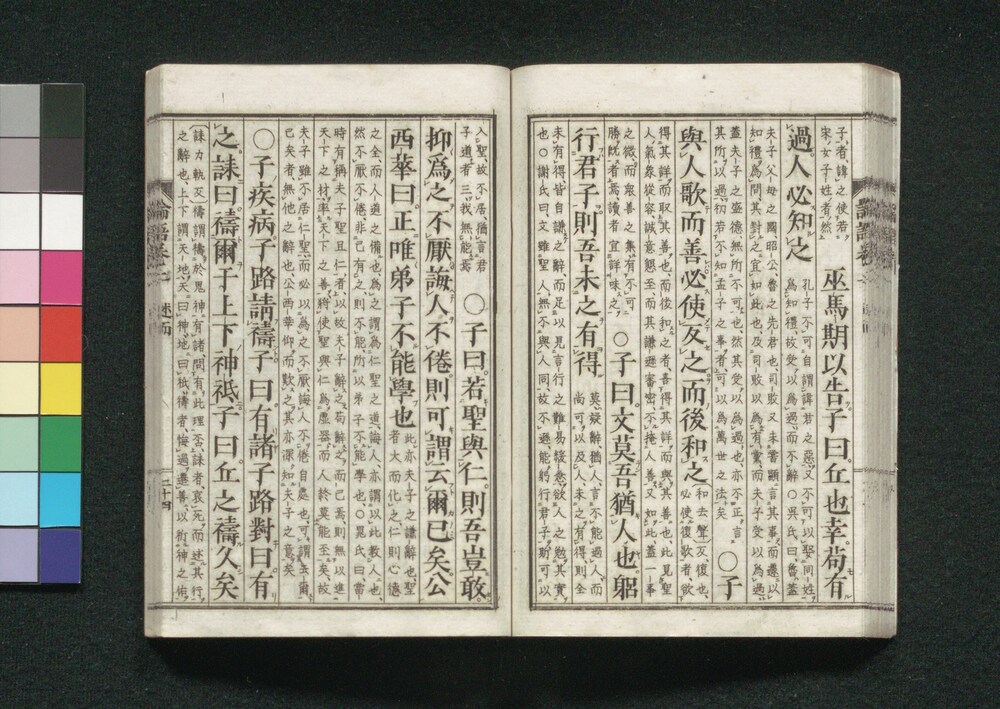 子者諱之使若
宋女子姓者然
巫馬期以告子曰丘也幸苟有
過人必知之
孔子不可自謂諱君之惡又不可以娶同姓
爲知禮故受以爲過而不辭○吳氏曰魯蓋
夫子父母之國昭公魯之先君也司敗又未嘗顯言其事而遽以
知禮爲問其對之宜如此也及司敗以爲有黨而夫子受以爲過
蓋夫子之盛德無所不可也然其受以爲過也亦不正言
其所以過初若不知孟子之事者可以爲萬世之法矣
○子
與人歌而善必使反之而後和之
和去聲反復也
必使復歌者欲
得其詳而取其善也而後和之者喜得其詳而與其善也此見聖
人氣象從容誠意懇至而其謙遜審密不掩人善又如此蓋一事
之微而衆善之集有不可
勝既者焉讀者宜詳味之
○子曰文莫吾猶人也躬
行君子則吾未之有得
莫疑辭猶人言不能過人而
尚可以及人未之有得則全
未有得皆自謙之辭而足以見言行之難易緩急欲人之勉其實
也○謝氏曰文雖聖人無不與人同故不遜能躬行君子斯可以
入聖故不居猶言君
子道者三我無能焉
○子曰若聖與仁則吾豈敢
抑爲之不厭誨人不倦則可謂云爾已矣公
西華曰正唯弟子不能學也
此亦夫子之謙辭也聖
者大而化之仁則心德
之全而人道之備也爲之謂爲仁聖之道誨人亦謂以此教人也
然不厭不倦非己有之則不能所以弟子不能學也○晁氏曰當
時有稱夫子聖且仁者以故夫子辭之苟辭之而已焉則無以進
天下之材率天下之善將使聖與仁爲虛器而人終莫能至矣故
夫子雖不居仁聖而必以爲之不厭誨人不倦自處也可謂云爾
已矣者無他之辭也公西華仰而歎之其亦深知夫子之意矣
○子疾病子路請禱子曰有諸子路對曰有
之誄曰禱爾于上下神祇子曰丘之禱久矣
誄力軌反禱謂禱於鬼神有諸問有此理否誄者哀死而述其行
之辭也上下謂天地天曰神地曰祇禱者悔過遷善以祈神之佑
論語卷
述而
三十四